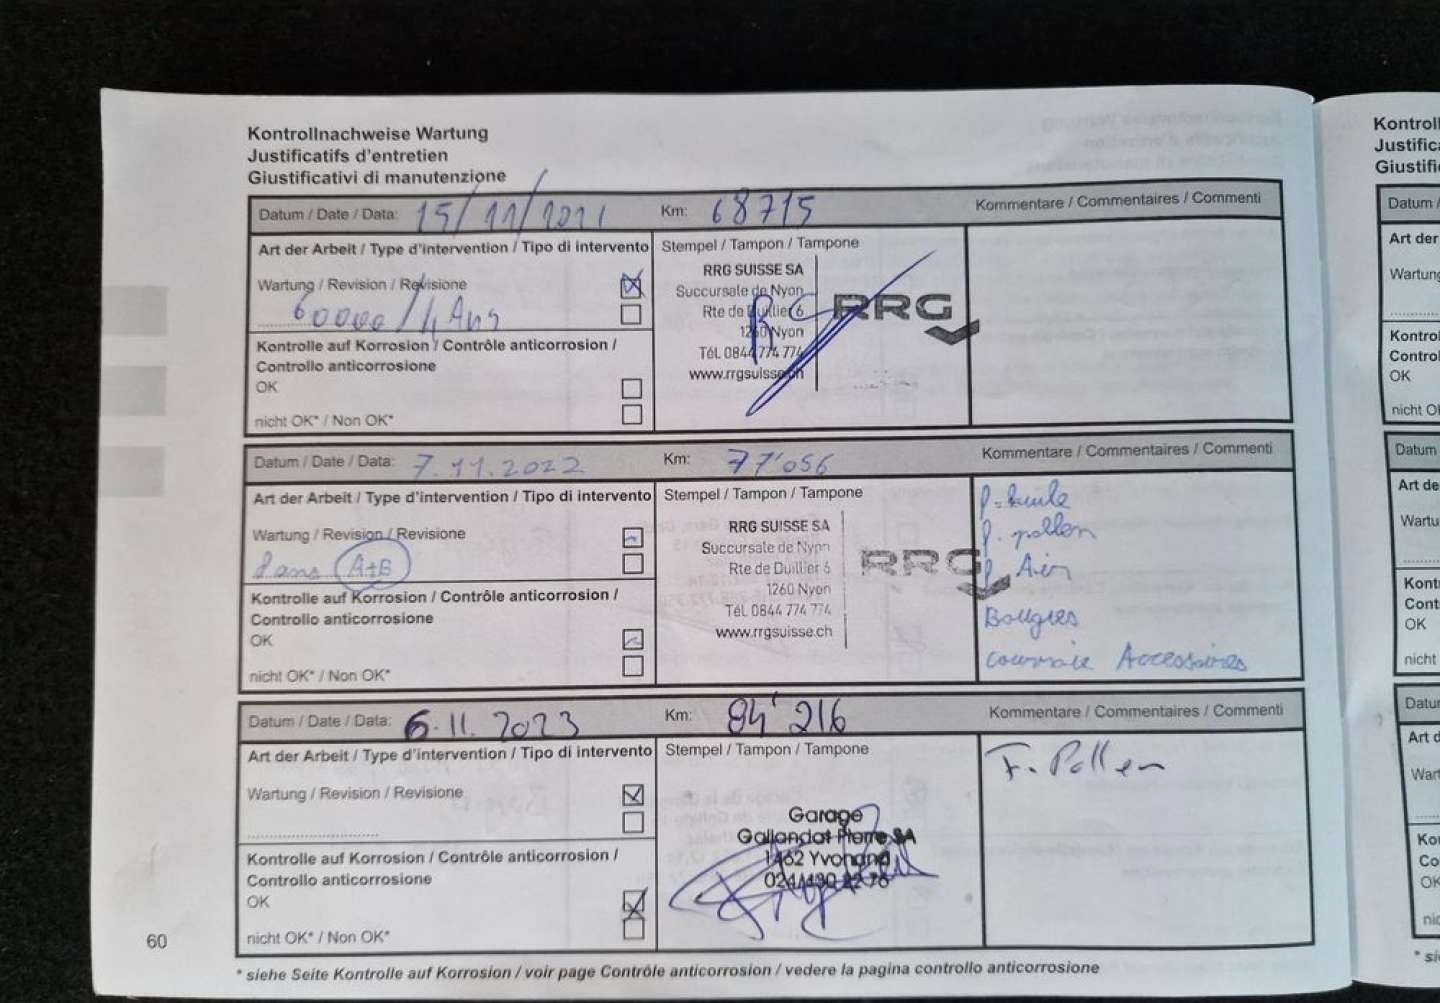 Kontrollnachweise Wartung
Justificatifs d'entretien
Giustificativi di manutenzione
Datum / Date / Data: 15/11/2021 Km: 68715 Kommentare / Commentaires / Commenti
Art der Arbeit / Type d'intervention / Tipo di intervento Stempel / Tampon / Tampone
Wartung / Revision / Revisione
60000 / 4 Ans
Kontrolle auf Korrosion / Contrôle anticorrosion /
Controllo anticorrosione
OK
nicht OK* / Non OK*
RRG SUISSE SA
Succursale de Nyon
Rte de Duillier 6
1260 Nyon
Tél. 0844 774 774
www.rrgsuisse.ch
RRG
Datum / Date / Data: 7.11.2022 Km: 77'056 Kommentare / Commentaires / Commenti
Art der Arbeit / Type d'intervention / Tipo di intervento Stempel / Tampon / Tampone
Wartung / Revision / Revisione
ans A+B
Kontrolle auf Korrosion / Contrôle anticorrosion /
Controllo anticorrosione
OK
nicht OK* / Non OK*
RRG SUISSE SA
Succursale de Nyon
Rte de Duillier 6
1260 Nyon
Tél. 0844 774 774
www.rrgsuisse.ch
RRG
huile
pollen
Air
Bougies
courroie Accessoires
Datum / Date / Data: 6.11.2023 Km: 84'216 Kommentare / Commentaires / Commenti
Art der Arbeit / Type d'intervention / Tipo di intervento Stempel / Tampon / Tampone
Wartung / Revision / Revisione
Kontrolle auf Korrosion / Contrôle anticorrosion /
Controllo anticorrosione
OK
nicht OK* / Non OK*
Garage
Gallandat Pierre SA
1462 Yvonand
F. Pollen
60
* siehe Seite Kontrolle auf Korrosion / voir page Contrôle anticorrosion / vedere la pagina controllo anticorrosione
Kontroll
Justifica
Giustifi
Datum /
Art der
Wartung
OK
nicht O
Datum
Art de
OK
nicht
Art d
OK